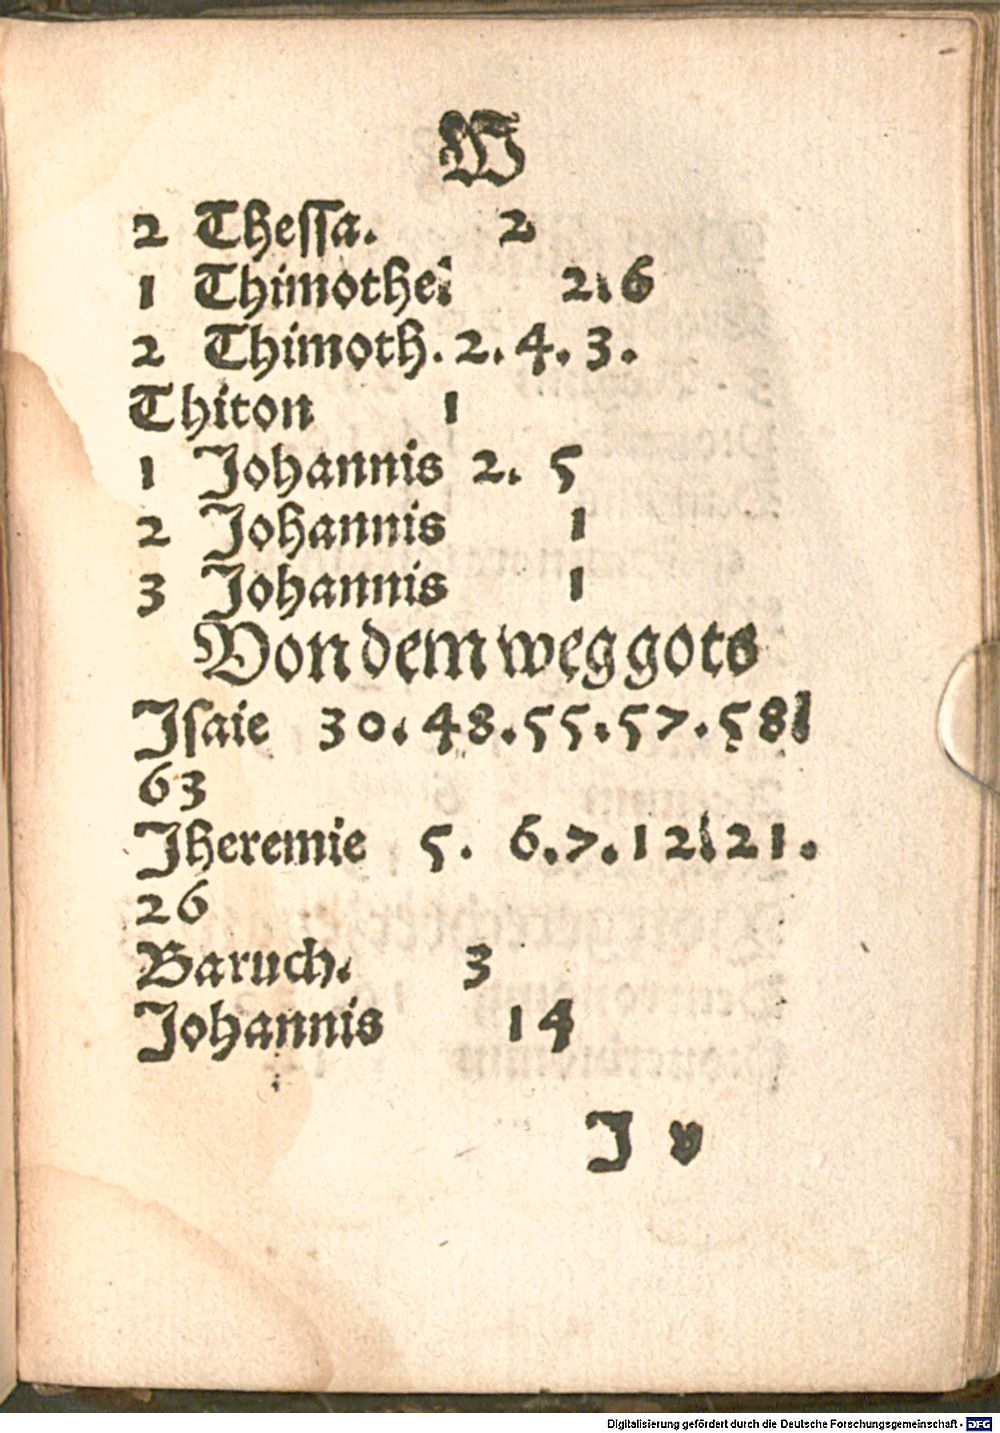 W
2 Thessa. 2
1 Thimothei 2.6
2 Thimoth. 2. 4. 3.
Thiton 1
1 Johannis 2. 5
2 Johannis 1
3 Johannis 1
Von dem weg gots
Jsaie 30. 48. 55. 57. 58
63
Jheremie 5. 6. 7. 12 21.
26
Baruch. 3
Johannis 14
J v
Digitalisierung gefördert durch die Deutsche Forschungsgemeinschaft - DFG